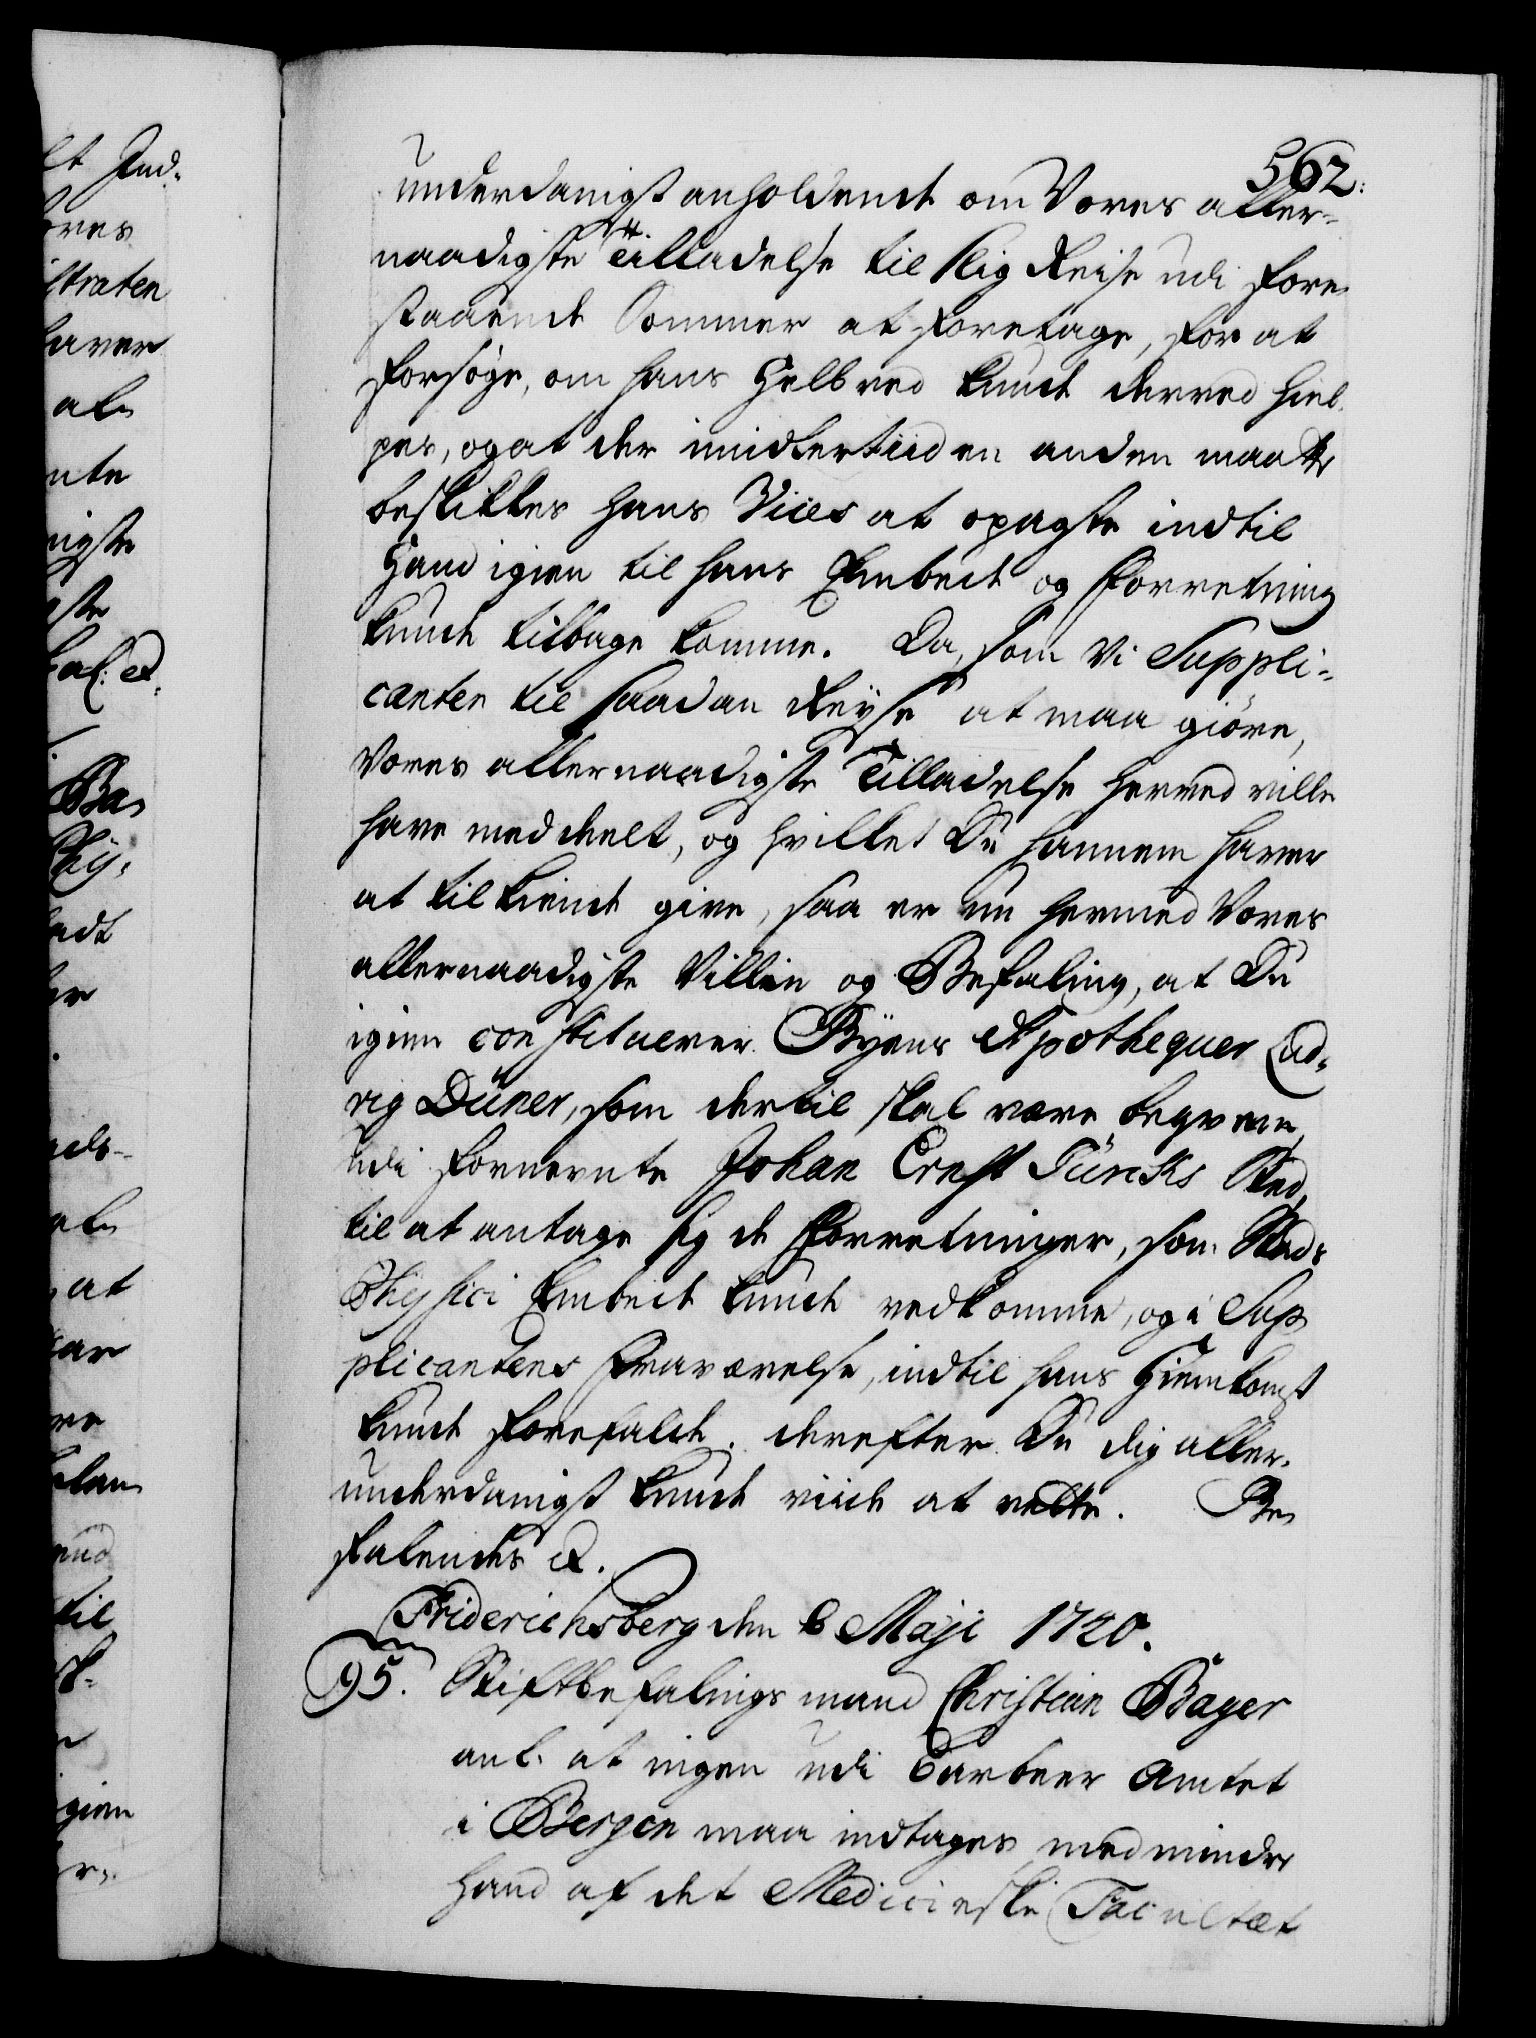 562.
underdanigst anholdendt om Vores aller-
naadigste Tilladelse til slig Reise udi fore-
staaende Sommer at foretage, for at
forsøge, om hans Helbred kunde derved hiel-
pes, og at der imidlertiid en anden maatte
beskikkes hans Vices at opagte indtil
Hand igien til hans Embede og Forretning
kunde tilbage komme. Da, som Vi Suppli-
canten til saadan Reyse at maa giöre,
Vores allernaadigste Tilladelse herved ville
have meddeelt, og hvilket Du hannem haver
at tilkiende give, saa er nu hermed Vores
allernaadigste Villie og Befaling, at Du
igien constituerer Byens Apothequer Lud-
vig Düner, som dertil skal være beqvem,
udi fornevnte Johan Ernst Türcks Sted,
til at antage sig de Forretninger, som Stads
Physici Embede kunde vedkomme, og i Sup-
plicantens Fraværelse, indtil hans Hiemkomst
kunde forefalde. derefter Du dig aller-
underdanigst kunde viide at rette. Be-
falendes etc.
Friderichsberg den 6 Maji 1720.
95. Stiftbefalingsmand Christian Bager
anl. at ingen udi Barbeer Amtet
i Bergen maa indtages, med mindre
hand af det Medicinske Facultæt
lt Ind-
ores
straten
haver
nte
at
til
igien